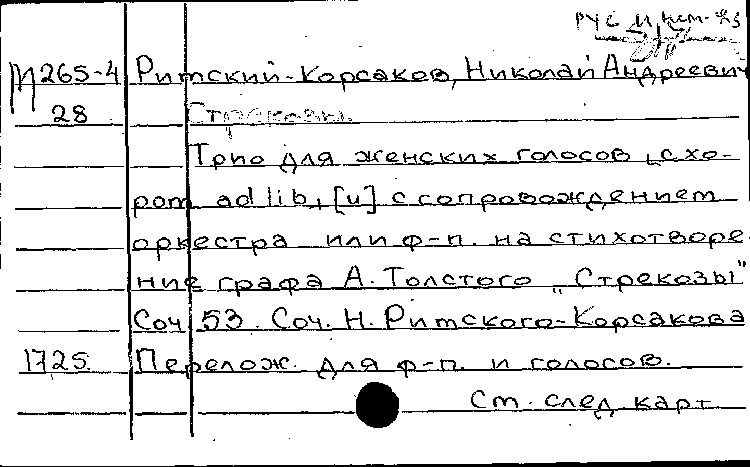 РУС
М265-4 Римский-Корсаков, Николай Андреевич
28 Стрекозы.
Трио для женских голосов, с хо-
ром ad lib., [и] с сопровождением
оркестра или ф-п. на стихотворе-
ние графа А. Толстого „Стрекозы"
Соч 53. Соч. Н. Римского-Корсакова
1725. Перелож. для ф-п. и голосов.
См. след карт